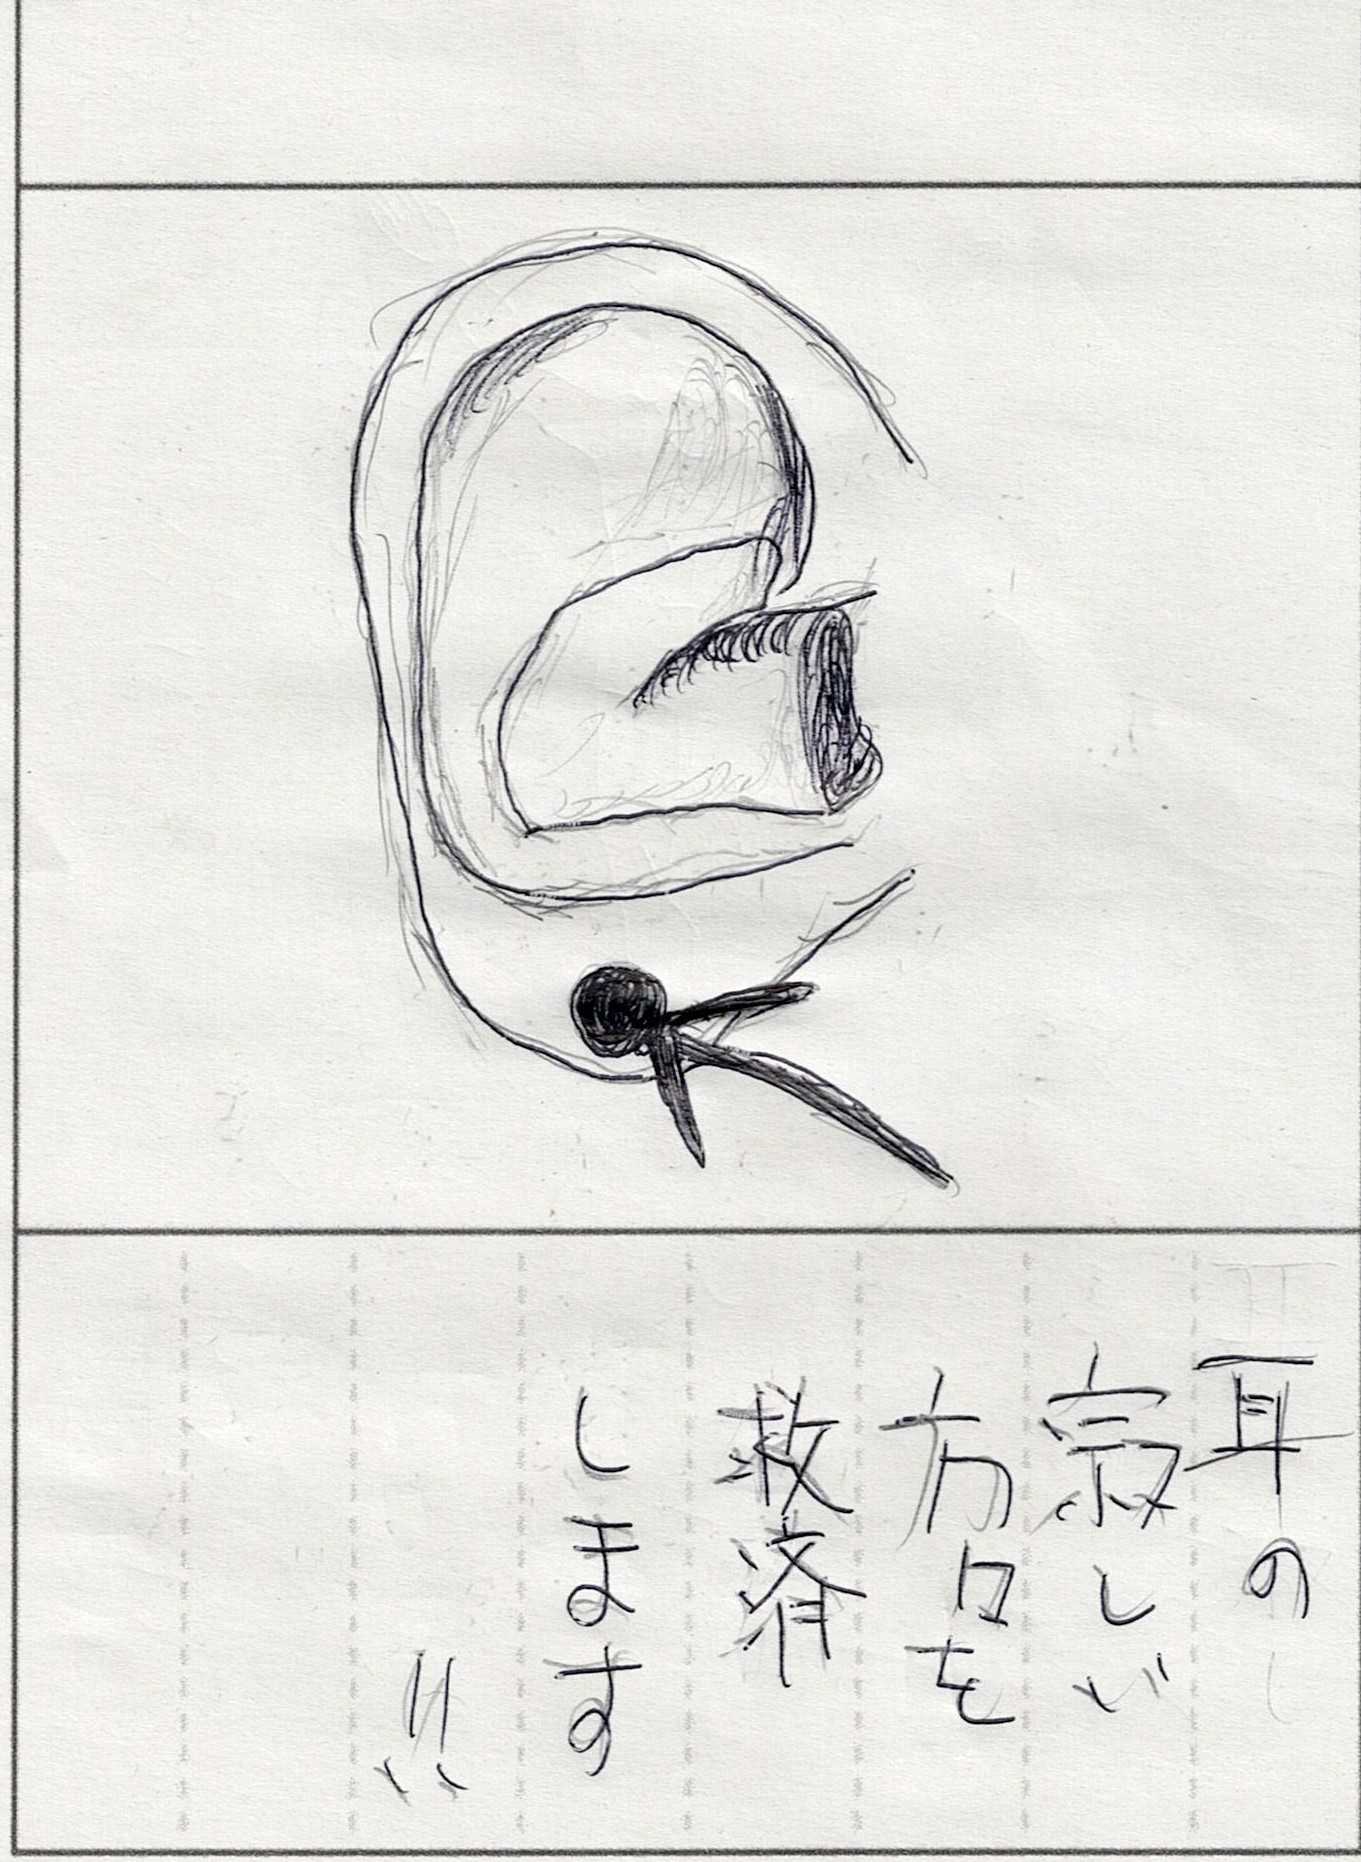 耳の
寂しい
方々を
救済
します
!!